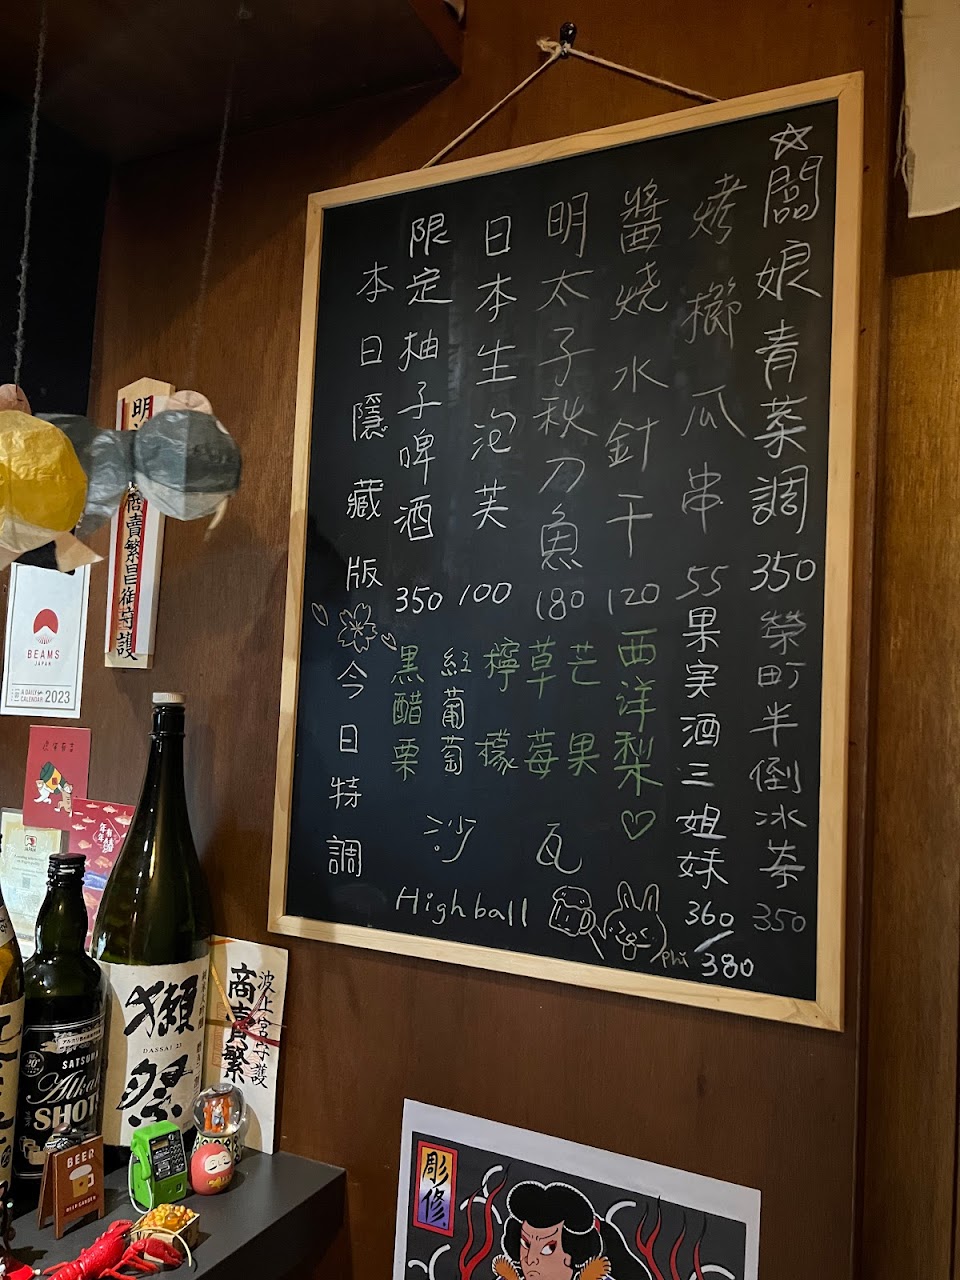 本日隱藏版
限定柚子啤酒 350
日本生泡芙 100
明太子秋刀魚 180
醬燒水針干 120
烤櫛瓜串 55
☆闆娘青菜調 350
今日特調
黑醋栗
紅葡萄
檸檬
草莓
芒果
西洋梨♡
沙瓦
Highball
phi
果実酒三姐妹 360/380
榮町半倒冰茶 350
商賣繁昌御守護
BEAMS
JAPAN
A DAILY
CALENDAR 2023
獺祭
DASSAI 23
SATSUMA
SHOT
波上宮守護
商賣繁
BEER
BEER GARDEN
彫修